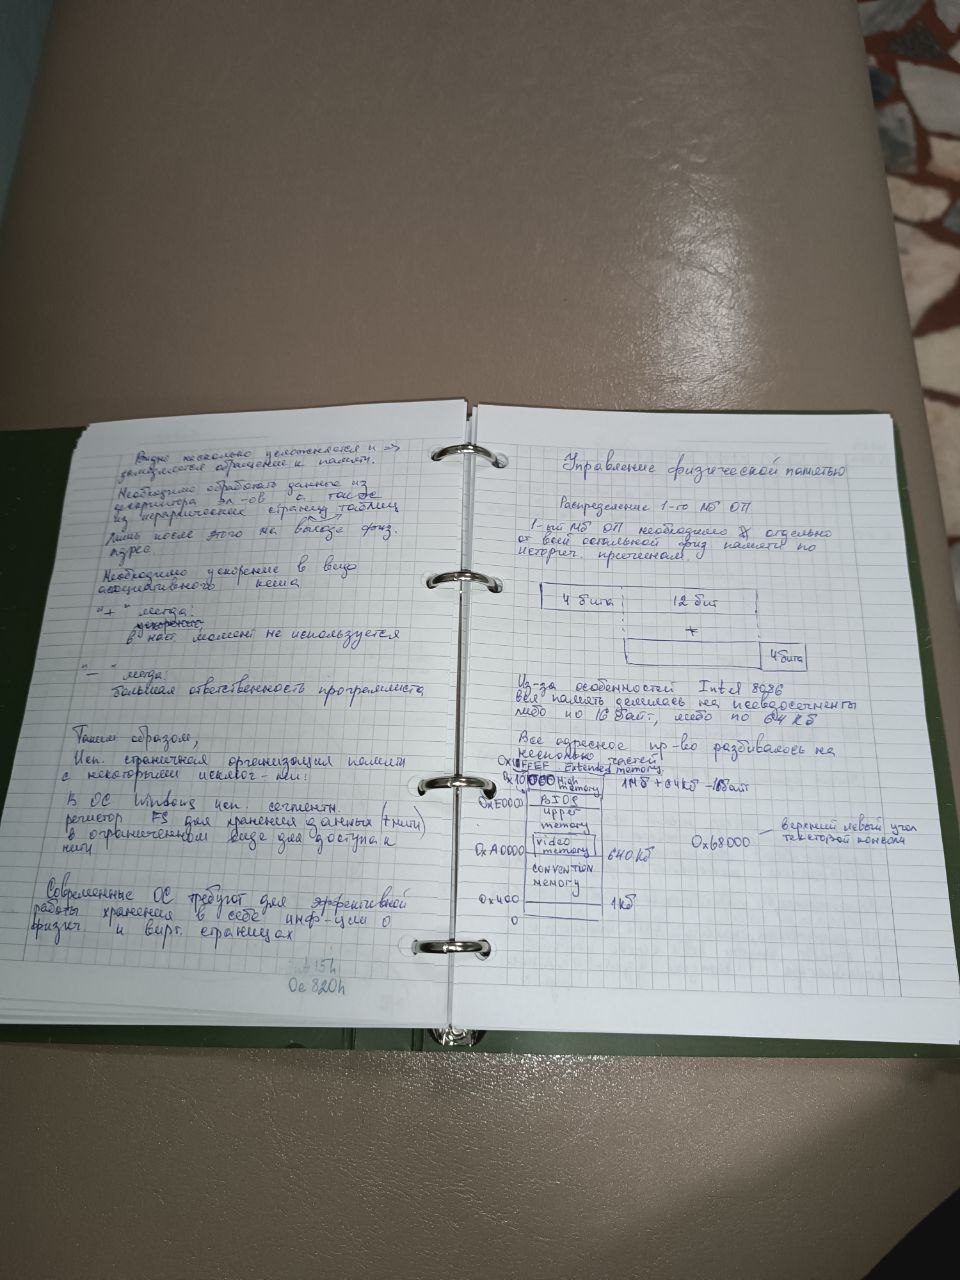 Видно несколько усложняется и =>
замедляется обращение к памяти.
Необходимо обработать данные из
дескриптора эл-ов а также
из иерархических страниц таблиц
Лишь после этого на выходе физ.
адрес
Необходимо ускорение в виде
ассоциативного кеша
"+" метода:
ускорение,
в наст момент не используется
"—" метода:
большая ответственность программиста
Таким образом,
Исп. страничная организация памяти
с некоторыми исключ-ями:
В ОС Windows исп. сегменты.
регистр FS для хранения данных (нити)
в ограниченном виде для доступа к
нити
Современные ОС требуют для эффективной
работы хранения в себе инф-ции о
физич. и вирт. страницах
15h
0e820h
Управление физической памятью
Распределение 1-го Мб ОП
1-ый Мб ОП необходимо отдельно
от всей остальной физ памяти по
историч. причинам.
4 бита 12 бит
+
4 бита
Из-за особенностей Intel 8086
вся память делилась на псевдосегменты
либо по 16 байт, либо по 64 Кб
Все адресное пр-во разбивалось на
несколько частей
Extended memory
High
memory
1Мб + 64кб - 16байт
0xE0000
BIOS
upper
memory
video
memory
0xA0000
640 Кб
0x68000
верхний левый угол
текстовой консоли
convention
memory
0x400
1Кб
0